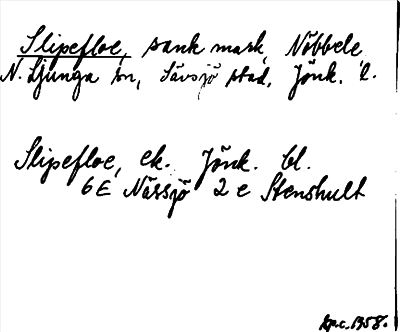 Slipefloe, sank mark, Nöbbele
N. Ljunga sn, Sävsjö stad, Jönk. l.
Slipefloe, ek. Jönk. bl.
6E Nässjö 2 e Stenshult
kp.c. 1958.